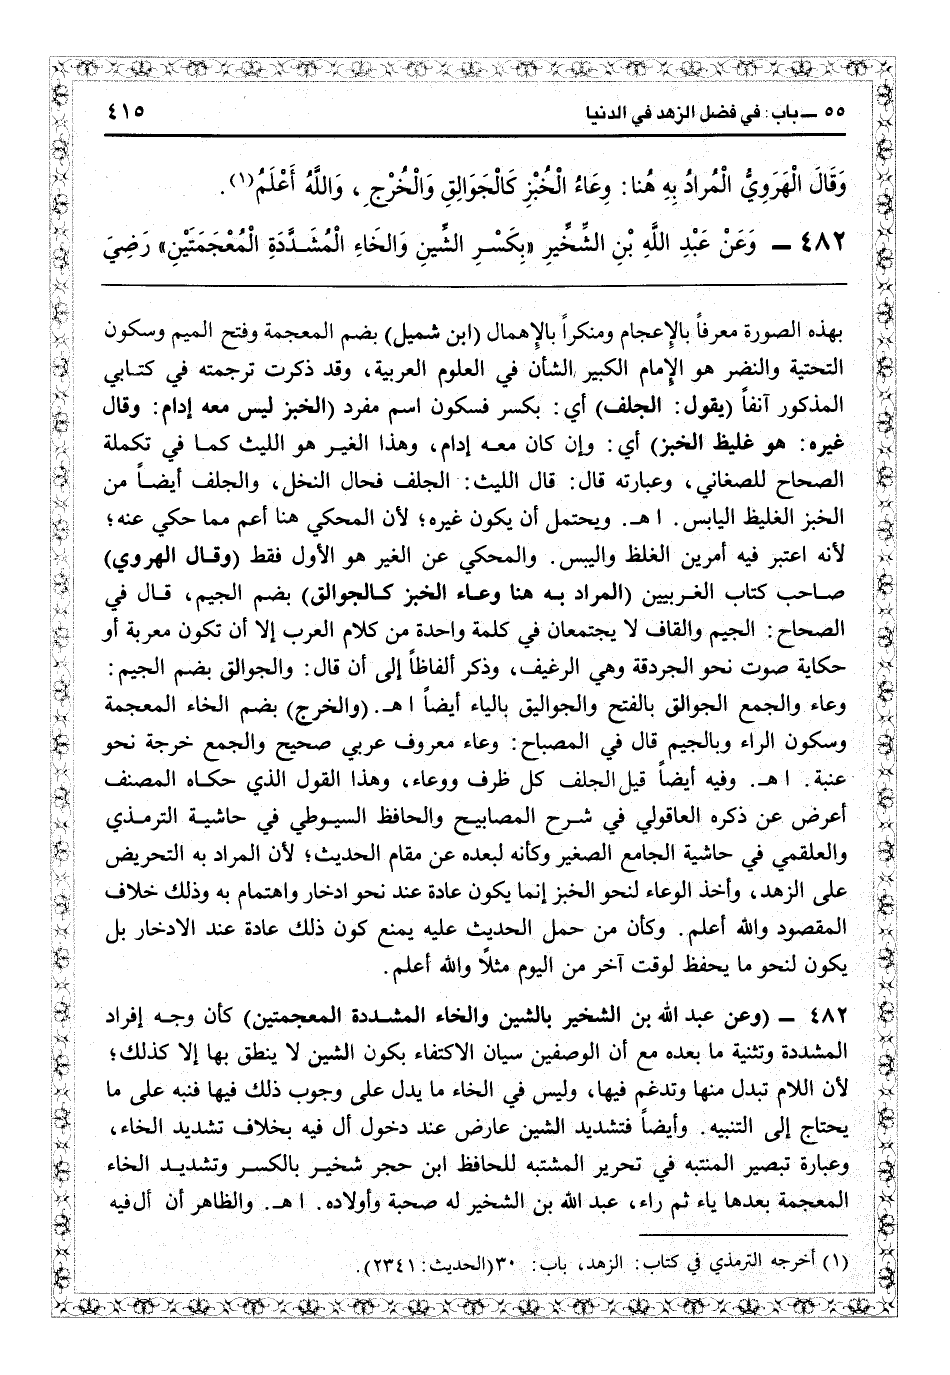 ٥٥ ــ باب: في فضل الزهد في الدنيا ٤١٥
وَقَالَ الْهَرَوِيُّ الْمُرَادُ بِهِ هُنا: وِعَاءُ الْخُبْزِ كَالْجَوَالِقِ وَالْخُرْجِ، وَاللَّهُ أَعْلَمُ(١).
٤٨٢ ــ وَعَنْ عَبْدِ اللَّهِ بْنِ الشِّخِّيرِ «بِكَسْرِ الشِّينِ وَالخَاءِ الْمُشَدَّدَةِ الْمُعْجَمَتَيْنِ» رَضِيَ
بهذه الصورة معرفاً بالإعجام ومنكراً بالإهمال (ابن شميل) بضم المعجمة وفتح الميم وسكون
التحتية والنضر هو الإمام الكبير الشأن في العلوم العربية، وقد ذكرت ترجمته في كتابي
المذكور آنفاً (يقول: الجلف) أي: بكسر فسكون اسم مفرد (الخبز ليس معه إدام: وقال
غيره: هو غليظ الخبز) أي: وإن كان معه إدام، وهذا الغير هو الليث كما في تكملة
الصحاح للصغاني، وعبارته قال: قال الليث: الجلف فحال النخل، والجلف أيضاً من
الخبز الغليظ اليابس. ا هـ. ويحتمل أن يكون غيره؛ لأن المحكي هنا أعم مما حكي عنه؛
لأنه اعتبر فيه أمرين الغلظ واليبس. والمحكي عن الغير هو الأول فقط (وقال الهروي)
صاحب كتاب الغريبين (المراد به هنا وعاء الخبز كالجوالق) بضم الجيم، قال في
الصحاح: الجيم والقاف لا يجتمعان في كلمة واحدة من كلام العرب إلا أن تكون معربة أو
حكاية صوت نحو الجردقة وهي الرغيف، وذكر ألفاظاً إلى أن قال: والجوالق بضم الجيم:
وعاء والجمع الجوالق بالفتح والجواليق بالياء أيضاً ا هـ. (والخرج) بضم الخاء المعجمة
وسكون الراء وبالجيم قال في المصباح: وعاء معروف عربي صحيح والجمع خرجة نحو
عنبة. ا هـ. وفيه أيضاً قيل الجلف كل ظرف ووعاء، وهذا القول الذي حكاه المصنف
أعرض عن ذكره العاقولي في شرح المصابيح والحافظ السيوطي في حاشية الترمذي
والعلقمي في حاشية الجامع الصغير وكأنه لبعده عن مقام الحديث؛ لأن المراد به التحريض
على الزهد، وأخذ الوعاء لنحو الخبز إنما يكون عادة عند نحو ادخار واهتمام به وذلك خلاف
المقصود والله أعلم. وكأن من حمل الحديث عليه يمنع كون ذلك عادة عند الادخار بل
يكون لنحو ما يحفظ لوقت آخر من اليوم مثلاً والله أعلم.
٤٨٢ ــ (وعن عبد الله بن الشخير بالشين والخاء المشددة المعجمتين) كأن وجه إفراد
المشددة وتثنية ما بعده مع أن الوصفين سيان الاكتفاء بكون الشين لا ينطق بها إلا كذلك؛
لأن اللام تبدل منها وتدغم فيها، وليس في الخاء ما يدل على وجوب ذلك فيها فنبه على ما
يحتاج إلى التنبيه. وأيضاً فتشديد الشين عارض عند دخول أل فيه بخلاف تشديد الخاء،
وعبارة تبصير المنتبه في تحرير المشتبه للحافظ ابن حجر شخير بالكسر وتشديد الخاء
المعجمة بعدها ياء ثم راء، عبد الله بن الشخير له صحبة وأولاده. ا هـ. والظاهر أن أل فيه
(١) أخرجه الترمذي في كتاب: الزهد، باب: ٣٠ (الحديث: ٢٣٤١).